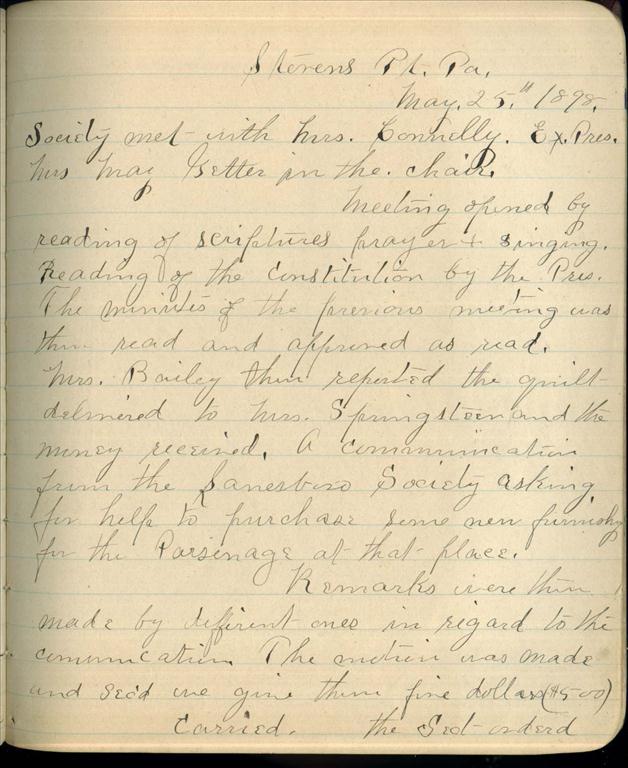 Stevens Pt. Pa.
May. 25.th 1898.
Society met with Mrs. Connelly. Ex. Pres.
Mrs May Setter in the. chair.
Meeting opened by
reading of scriptures prayer + singing.
Reading of the constitution by the Pres.
The minutes of the previous meeting was
then read and approved as read.
Mrs. Bailey then reported the quilt
delivered to Mrs. Springsteen and the
money received. A communication
from the Lanesboro Society asking
for help to purchase some new furnishg
for the Parsinage at that place.
Remarks were then
made by different ones in regard to the
comunication. The motion was made
and sec'd we give them five dollars ($5.00)
Carried. the Sect orderd